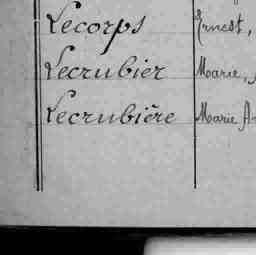 Lecorps Ernest,
Lecrubier Marie,
Lecrubière Marie